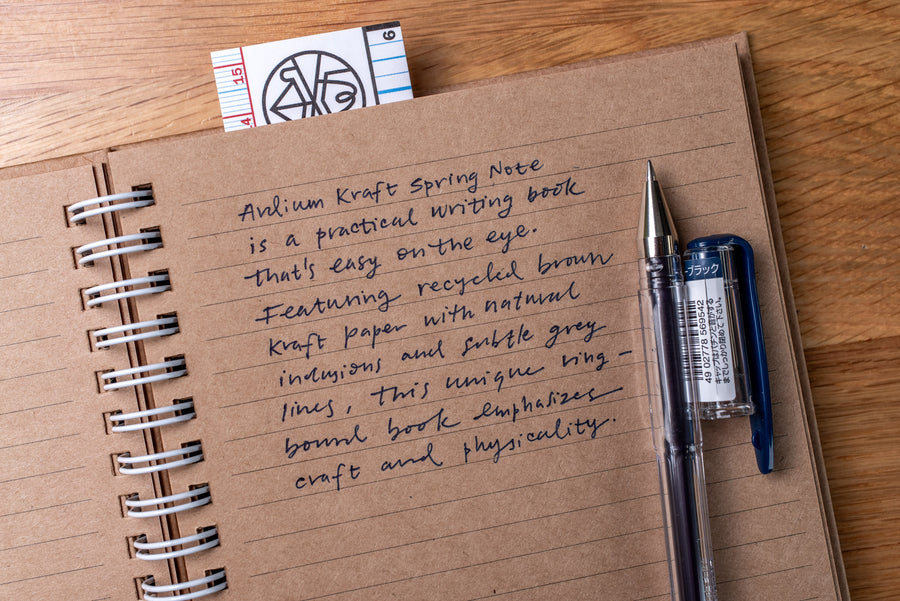 15
6
4
Avlium Kraft Spring Note
is a practical writing book
that's easy on the eye.
Featuring recycled brown
kraft paper with natural
inclusions and subtle grey
lines, this unique ring-
bound book emphasizes
craft and physicality.
-ブラック
4902778 569542
キャップはパチンと音がする
までしっかり閉めて下さい。